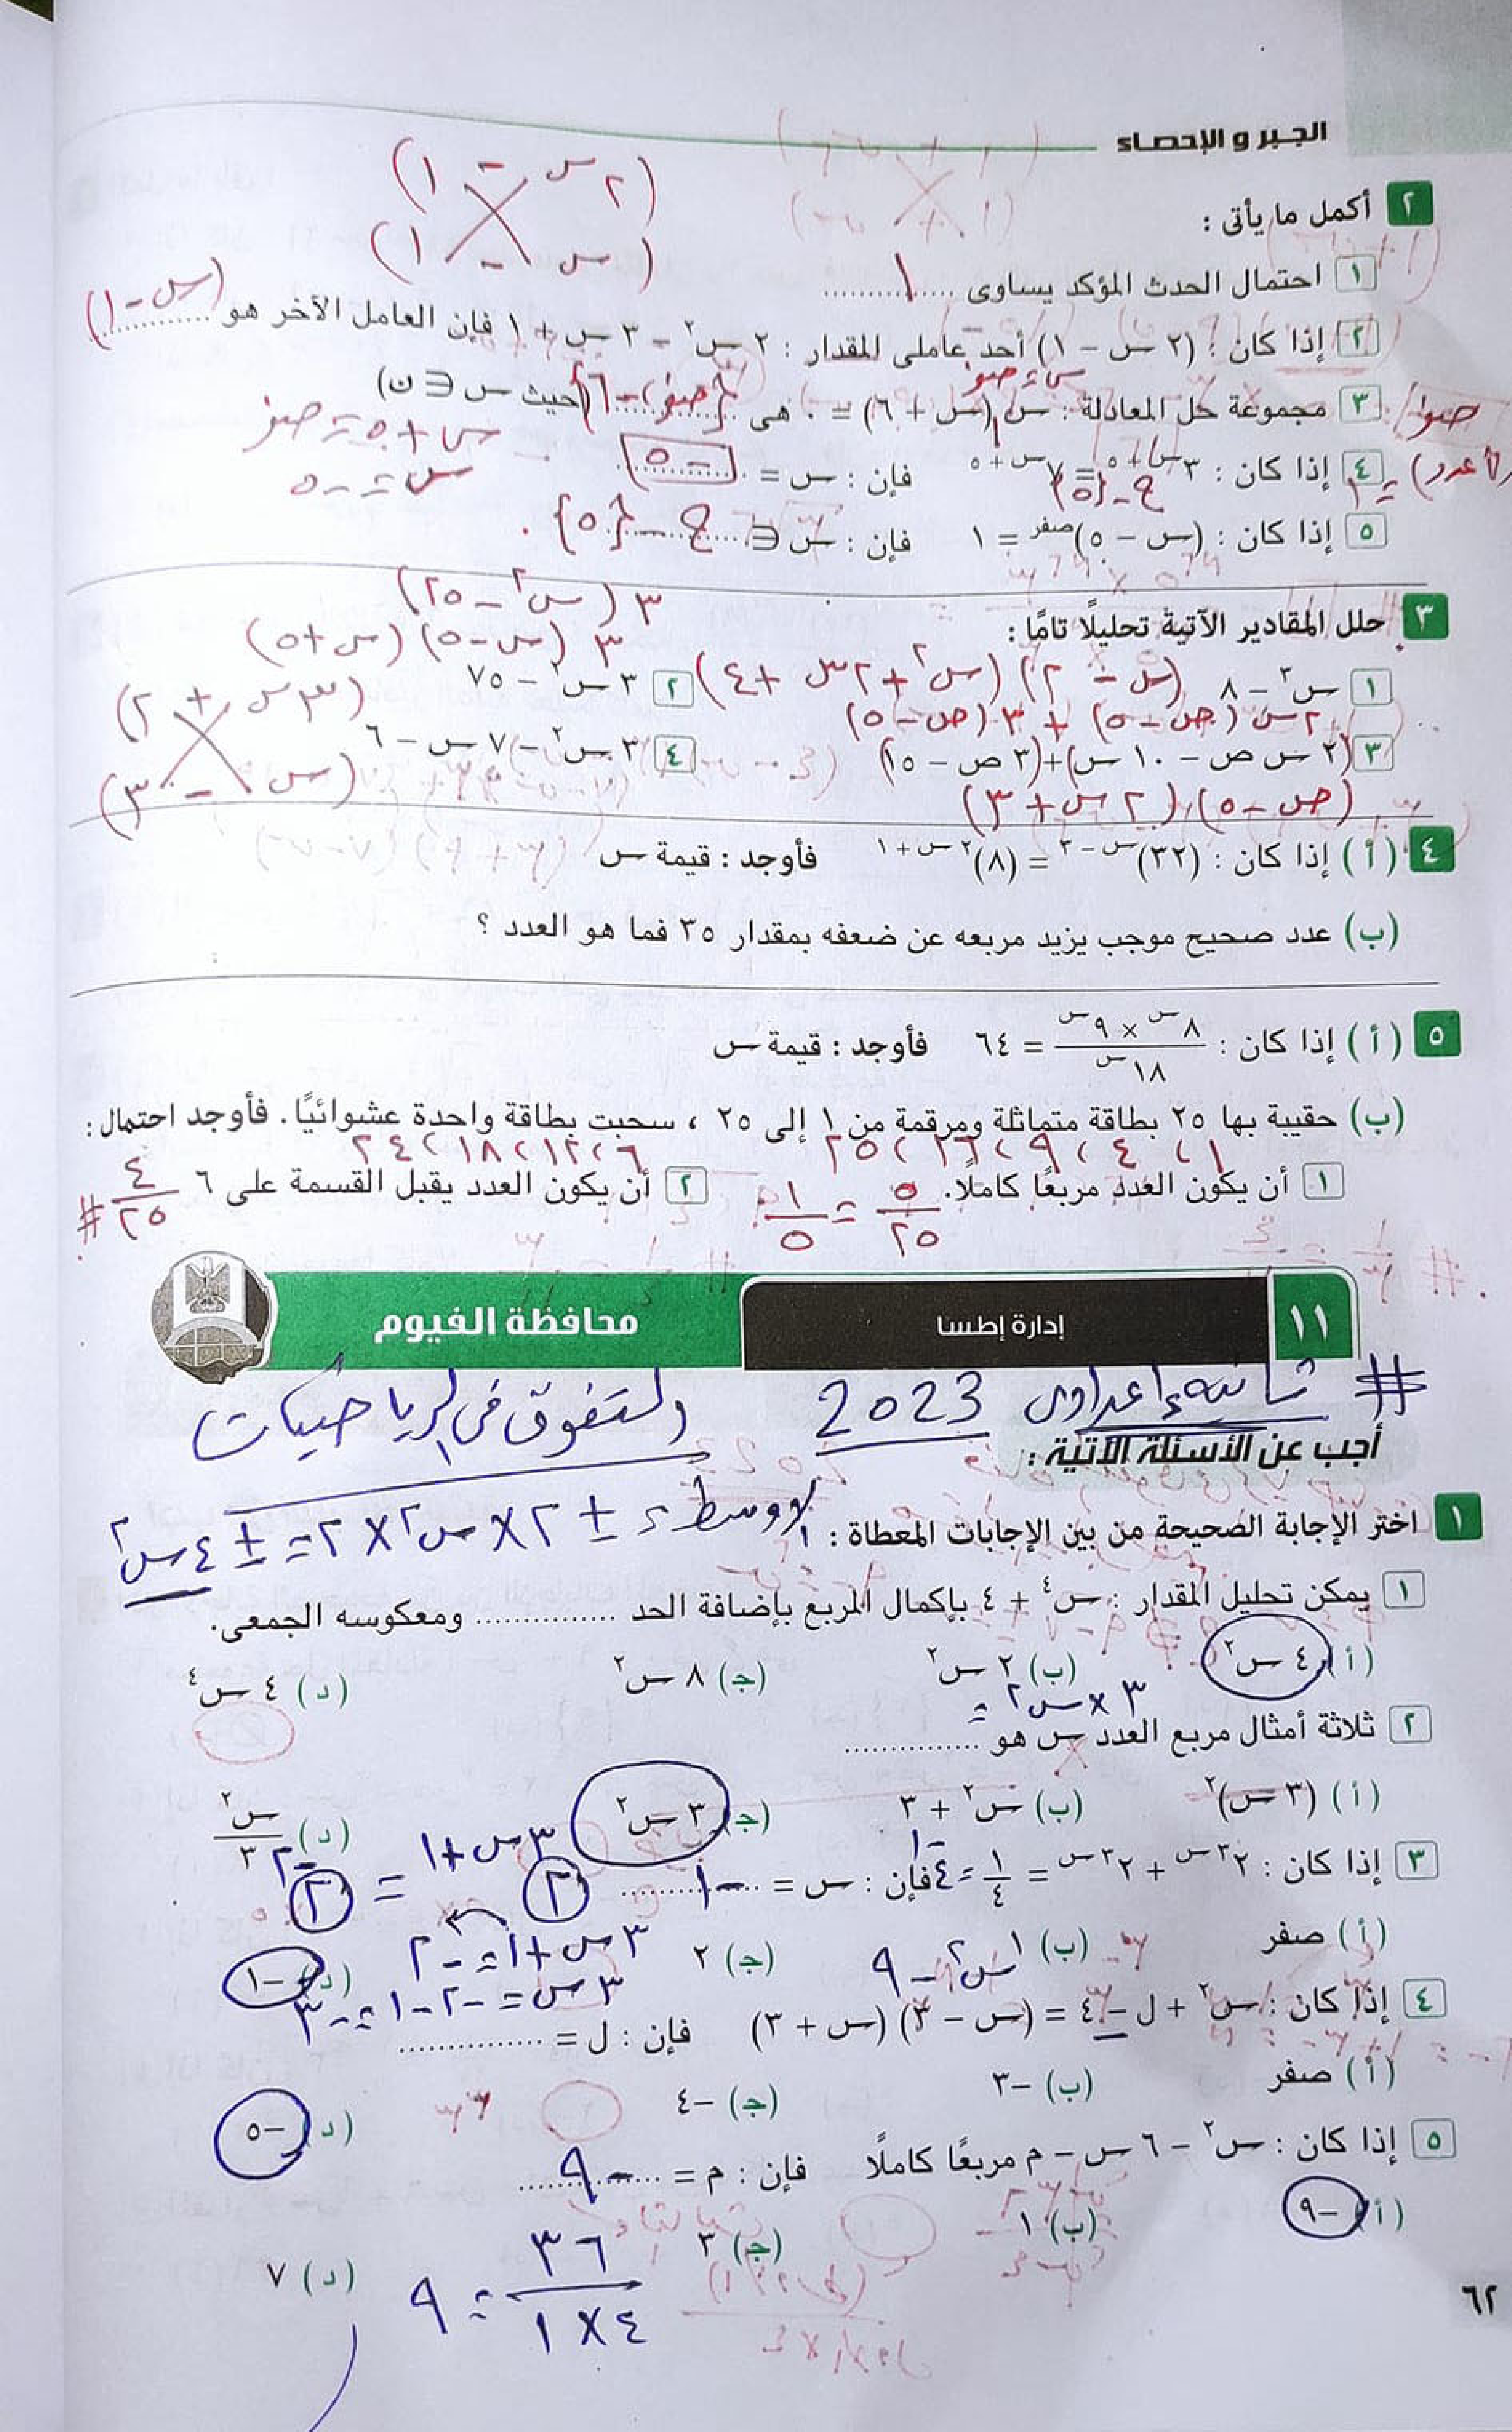 الجبر و الإحصاء
٢ أكمل ما يأتى :
(٢ س - ١)
(س - ١)
١ احتمال الحدث المؤكد يساوى ....١....
٢ إذا كان : (٢ س - ١) أحد عاملى المقدار : ٢ س٢ - ٣ س + ١ فإن العامل الآخر هو (س - ١)
س = صفر
٣ مجموعة حل المعادلة : س (س + ٦) = ٠ هى {صفر ، -٦} (حيث س ∈ ن)
س + ٥ = صفر
٤ إذا كان : ٣س+٥ = ٧س+٥ فإن : س = -٥
س = -٥
ح - {٥}
٥ إذا كان : (س - ٥)صفر = ١ فإن : س ∈ ح - {٥}
٣ (س٢ - ٢٥)
٣ حلل المقادير الآتية تحليلًا تامًا :
٣ (س - ٥) (س + ٥)
١ س٣ - ٨ (س - ٢) (س٢ + ٢س + ٤) ٢ ٣ س٢ - ٧٥
٢س (ص - ٥) + ٣ (ص - ٥) (٣س + ٢)
٣ (٢ س ص - ١٠ س) + (٣ ص - ١٥) ٤ ٣ س٢ - ٧ س - ٦
(ص - ٥) (٢ س + ٣) (س - ٣)
٤ (أ) إذا كان : (٣٢)س-٣ = (٨)٢س+١ فأوجد : قيمة س
(ب) عدد صحيح موجب يزيد مربعه عن ضعفه بمقدار ٣٥ فما هو العدد ؟
٥ (أ) إذا كان : ٨س × ٩س / ١٨س = ٦٤ فأوجد : قيمة س
(ب) حقيبة بها ٢٥ بطاقة متماثلة ومرقمة من ١ إلى ٢٥ ، سحبت بطاقة واحدة عشوائيًا. فأوجد احتمال :
١ ، ٤ ، ٩ ، ١٦ ، ٢٥ ٦ ، ١٢ ، ١٨ ، ٢٤
١ أن يكون العدد مربعًا كاملًا. ٢ أن يكون العدد يقبل القسمة على ٦ ٤/٢٥ #
٥/٢٥ = ١/٥
١١ إدارة إطسا محافظة الفيوم
# ثانية إعدادى 2023 والتفوق فى الرياضيات
أجب عن الأسئلة الآتية :
١ اختر الإجابة الصحيحة من بين الإجابات المعطاة : الأوسط = ± ٢ × س٢ × ٢ = ± ٤ س٢
١ يمكن تحليل المقدار : س٤ + ٤ بإكمال المربع بإضافة الحد .............. ومعكوسه الجمعى.
(أ) ٤ س٢ (ب) ٢ س٢ (ج) ٨ س٢ (د) ٤ س٤
٣ × س٢ =
٢ ثلاثة أمثال مربع العدد س هو ..............
(أ) (٣ س)٢ (ب) س٢ + ٣ (ج) ٣ س٢ (د) س٢/٣
٢ ٣س+١ = ٢ -٢
٣ إذا كان : ٢٣س + ٢٣س = ١/٤ = ٤-١ فإن : س = -١
٣س + ١ = -٢
(أ) صفر (ب) ١ (ج) ٢ (د) -١
س٢ - ٩ ٣س = -٢ - ١ = -٣
٤ إذا كان : س٢ + ل - ٤ = (س - ٣) (س + ٣) فإن : ل = ..............
(أ) صفر (ب) -٣ (ج) -٤ (د) -٥
٥ إذا كان : س٢ - ٦ س - م مربعًا كاملًا فإن : م = -٩
(أ) -٩ (ب) ١ (ج) ٣ (د) ٧
٣٦ / ٤ × ١ = ٩
٦٢